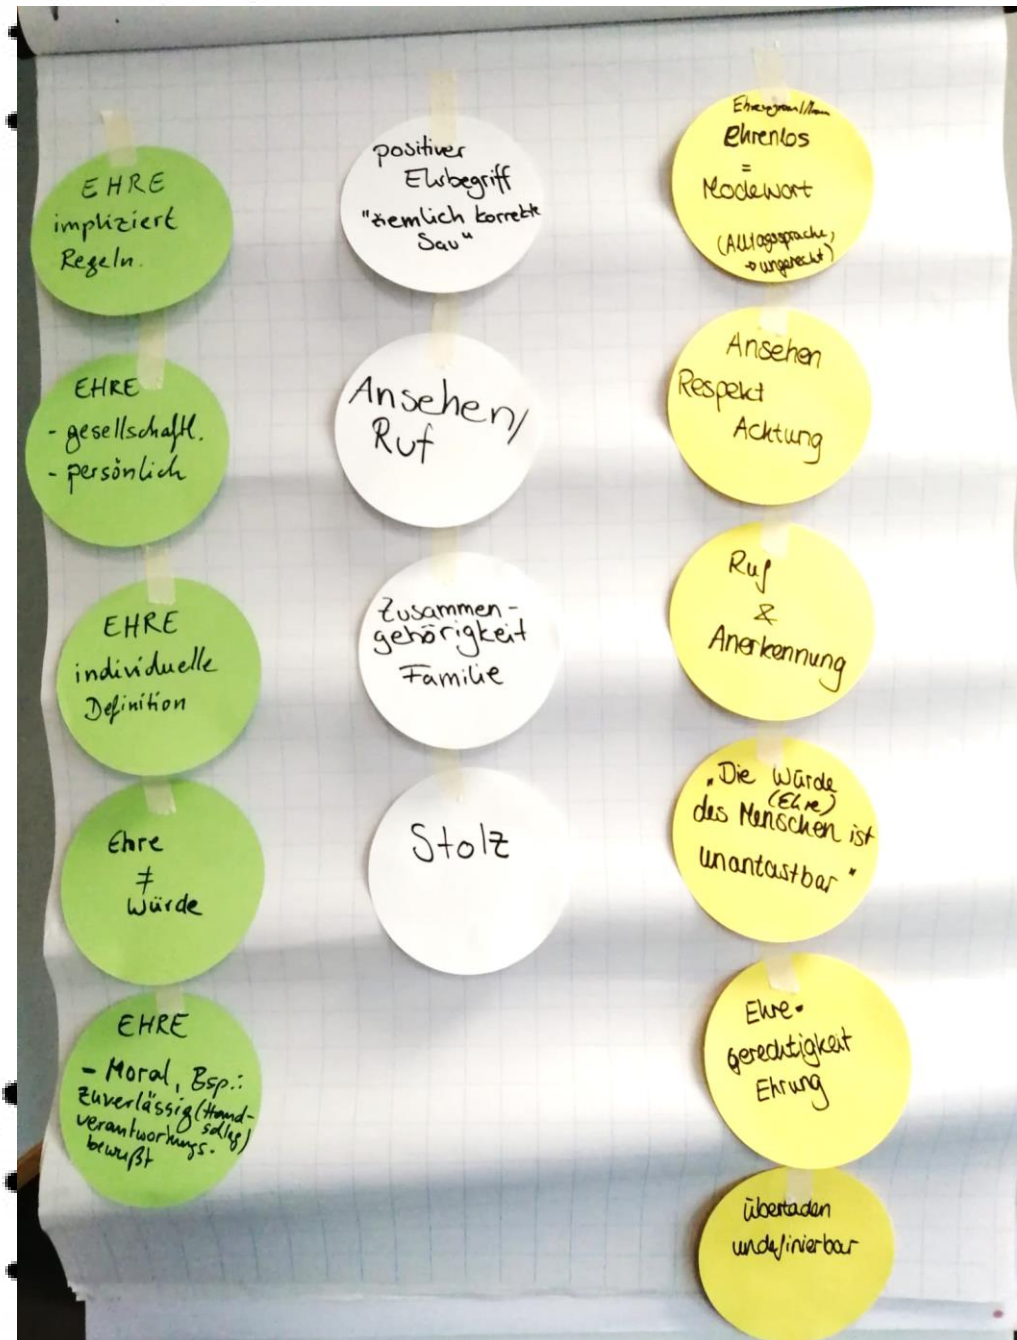 EHRE
impliziert
Regeln.
EHRE
- gesellschaftl.
- persönlich
EHRE
individuelle
Definition
Ehre
≠
Würde
EHRE
- Moral, Bsp.:
Zuverlässig (Hand-
schlag)
verantwortungs-
bewußt
positiver
Ehrbegriff
"ziemlich korrekte
Sau"
Ansehen/
Ruf
Zusammen-
gehörigkeit
Familie
Stolz
Ehrlos
=
Modewort
(Alltagssprache,
→ ungerecht)
Ansehen
Respekt
Achtung
Ruf
&
Anerkennung
„Die Würde
(Ehre)
des Menschen ist
unantastbar"
Ehre.
gerechtigkeit
Ehrung
überladen
undefinierbar